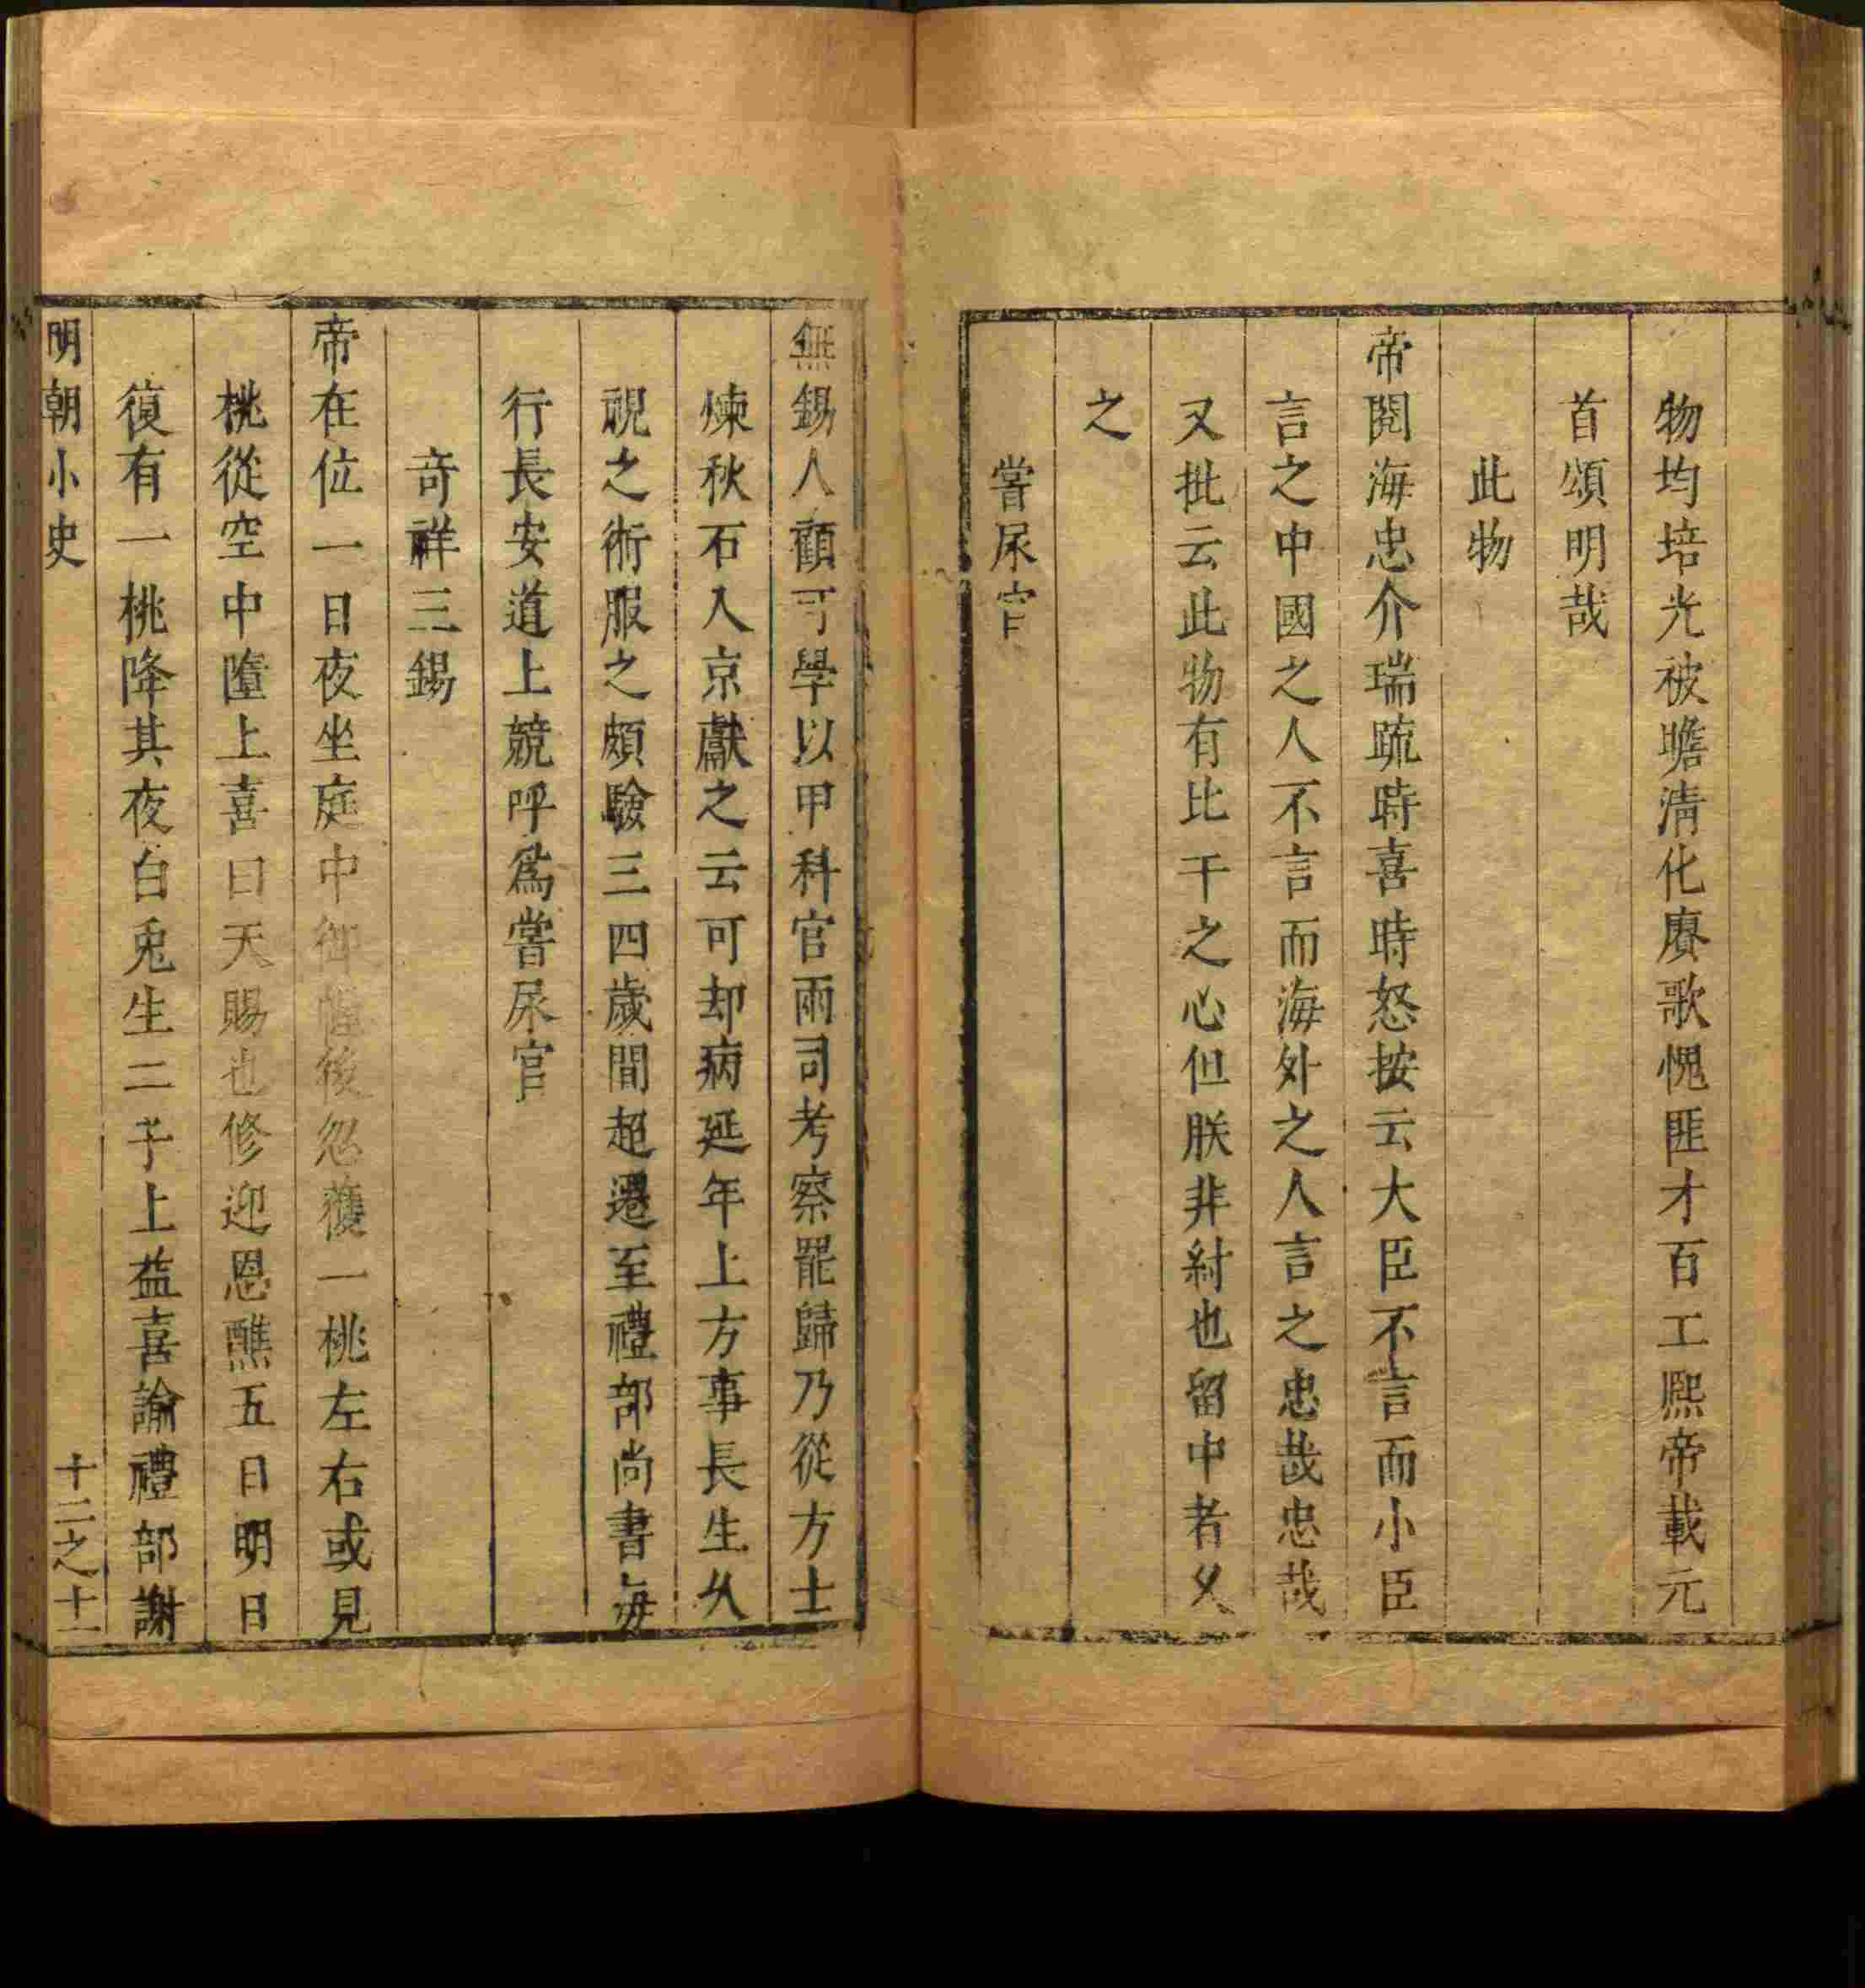 物均培光被瞻淸化賡歌愧匪才百工熈帝載元
首頌明哉
此物
帝閱海忠介瑞疏時喜時怒按云大臣不言而小臣
言之中國之人不言而海外之人言之忠哉忠哉
又批云此物有比干之心但朕非紂也留中者久
之
嘗尿官
無錫人顧可學以甲科官兩司考察罷歸乃從方士
煉秋石入京獻之云可却病延年上方事長生久
視之術服之頗驗三四歲間超遷至禮部尚書每
行長安道上競呼爲嘗尿官
竒祥三錫
帝在位一日夜坐庭中御幄後忽獲一桃左右或見
桃從空中墮上喜曰天賜也修迎恩醮五日明日
復有一桃降其夜白兎生二子上益喜諭禮部謝
明朝小史
十二之十一